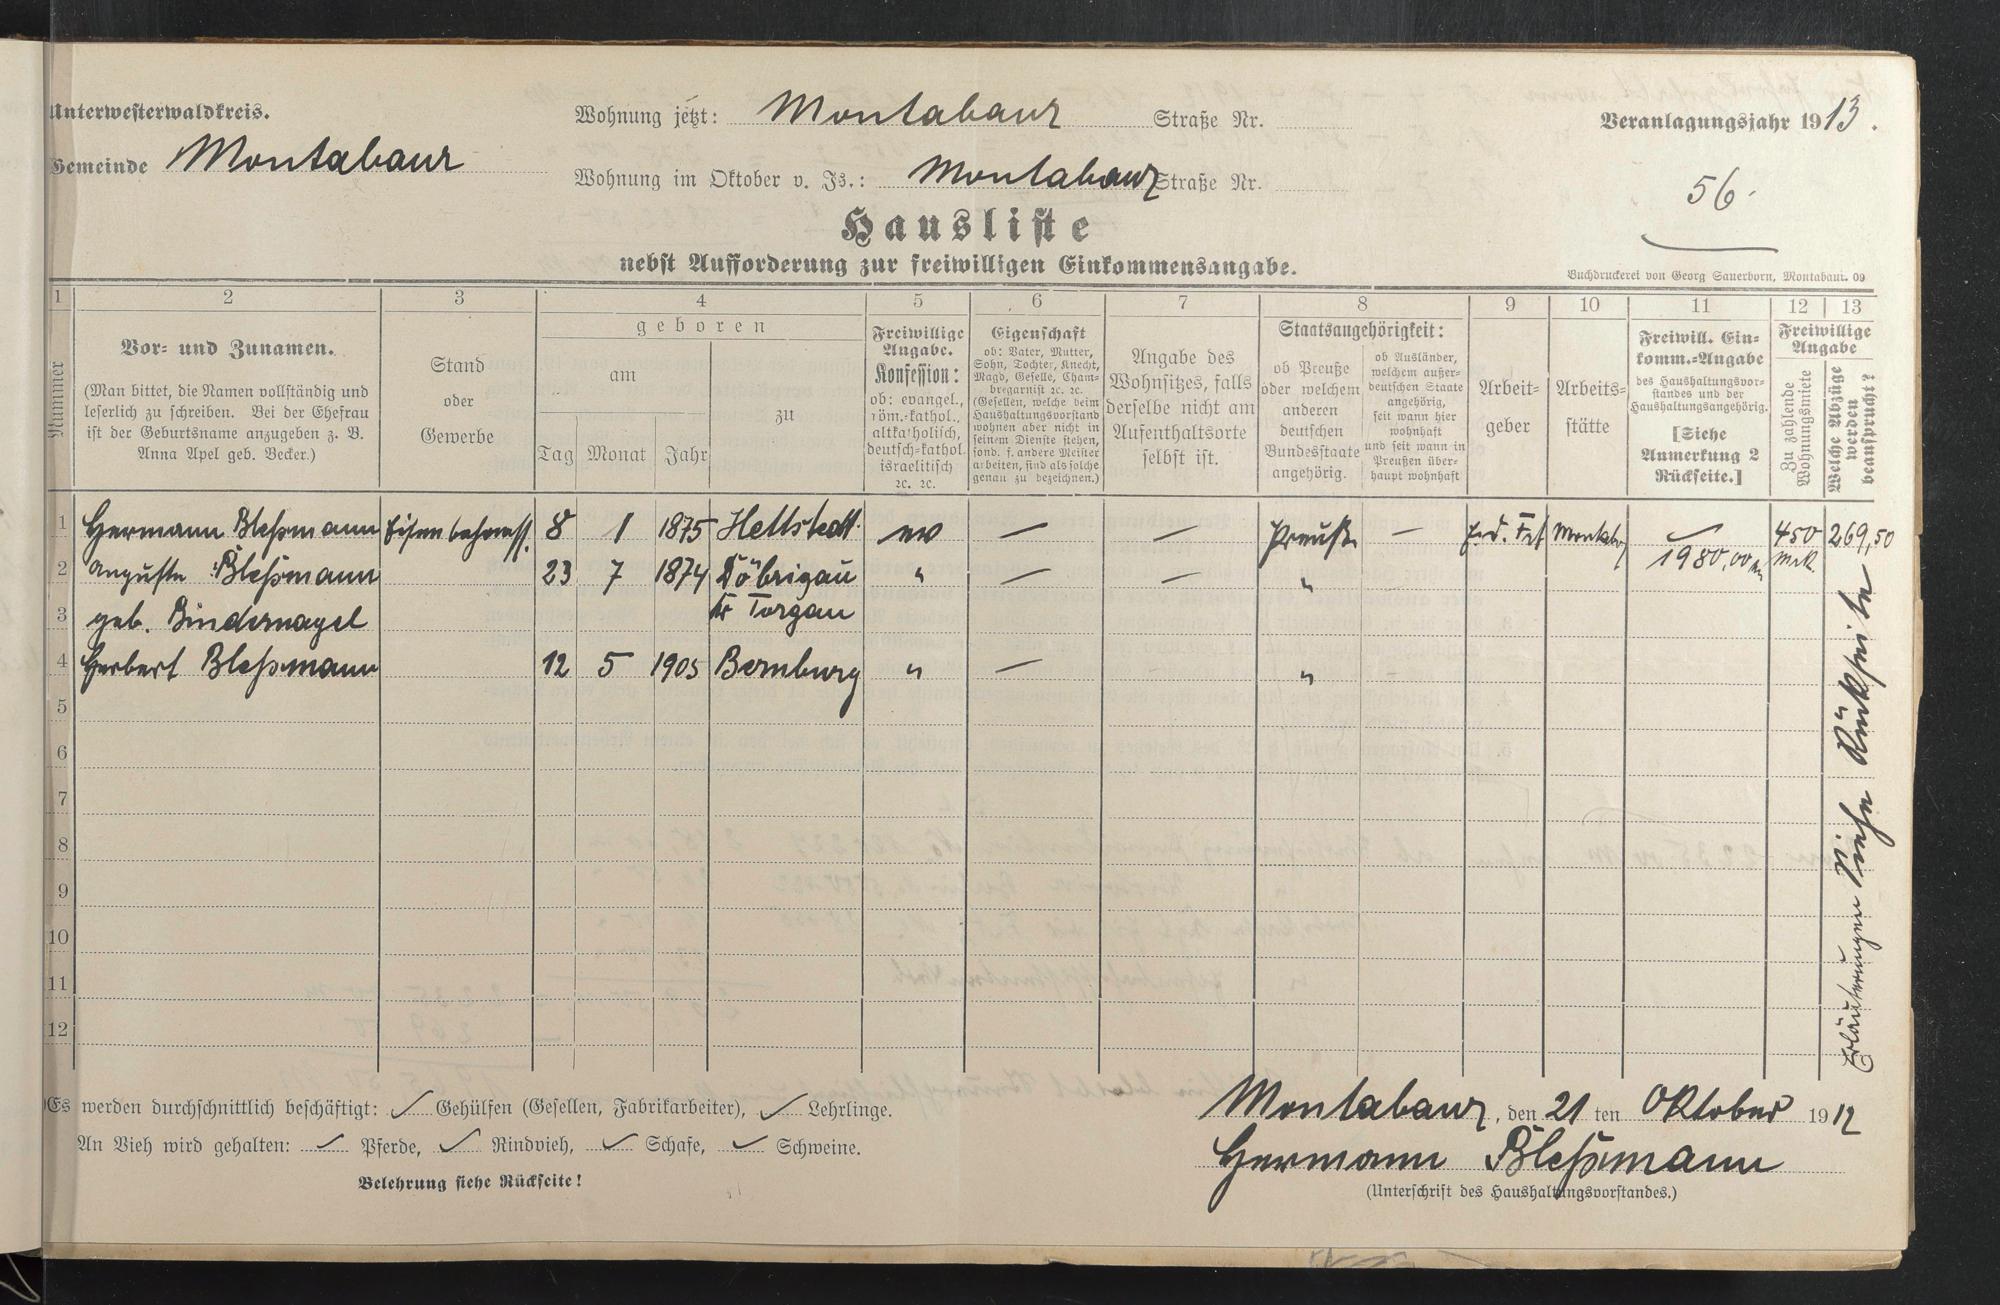 Unterwesterwaldkreis.
Gemeinde Montabaur
Wohnung jetzt: Montabaur Straße Nr.
Wohnung im Oktober v. Js.: Montabaur Straße Nr.
Veranlagungsjahr 1913.
56.
Hausliste
nebst Aufforderung zur freiwilligen Einkommensangabe.
Buchdruckerei von Georg Sauerborn, Montabaur. 09
1 2 3 4 5 6 7 8 9 10 11 12 13
Nummer
Vor- und Zunamen.
(Man bittet, die Namen vollständig und
leserlich zu schreiben. Bei der Ehefrau
ist der Geburtsname anzugeben z. B.
Anna Apel geb. Becker.)
Stand
oder
Gewerbe
geboren
am
Tag Monat Jahr
zu
Freiwillige
Angabe.
Konfession:
ob: evangel.,
röm.-kathol.,
altkatholisch,
deutsch-kathol.
israelitisch
ꝛc. ꝛc.
Eigenschaft
ob: Vater, Mutter,
Sohn, Tochter, Knecht,
Magd, Geselle, Cham-
bregarnist ꝛc. ꝛc.
(Gesellen, welche beim
Haushaltungsvorstand
wohnen aber nicht in
seinem Dienste stehen,
sond. f. andere Meister
arbeiten, sind als solche
genau zu bezeichnen.)
Angabe des
Wohnsitzes, falls
derselbe nicht am
Aufenthaltsorte
selbst ist.
Staatsangehörigkeit:
ob Preuße
oder welchem
anderen
deutschen
Bundesstaate
angehörig.
ob Ausländer,
welchem außer-
deutschen Staate
angehörig,
seit wann hier
wohnhaft
und seit wann in
Preußen über-
haupt wohnhaft
Arbeit-
geber
Arbeits-
stätte
Freiwill. Ein-
komm.-Angabe
des Haushaltungsvor-
standes und der
Haushaltungsangehörig.
[Siehe
Anmerkung 2
Rückseite.]
Freiwillige
Angabe
Zu zahlende
Wohnungsmiete
Welche Abzüge
werden
beansprucht?
1 Hermann Bleßmann Eisenbahnass. 8 1 1875 Hettstedt ev — — Preuße — Montabr 1980,00 M 450 Mk. 269,50
2 Auguste Bleßmann 23 7 1874 Döbrigau " — — "
3 geb. Bindernagel Kr Torgau
4 Herbert Bleßmann 12 5 1905 Bernburg " — "
5
6
7
8
9
10
11
12
Erläuterungen siehe Rückseite
Es werden durchschnittlich beschäftigt: Gehülfen (Gesellen, Fabrikarbeiter), Lehrlinge.
An Vieh wird gehalten: Pferde, Rindvieh, Schafe, Schweine.
Belehrung siehe Rückseite!
Montabaur, den 21 ten Oktober 1912
Hermann Bleßmann
(Unterschrift des Haushaltungsvorstandes.)